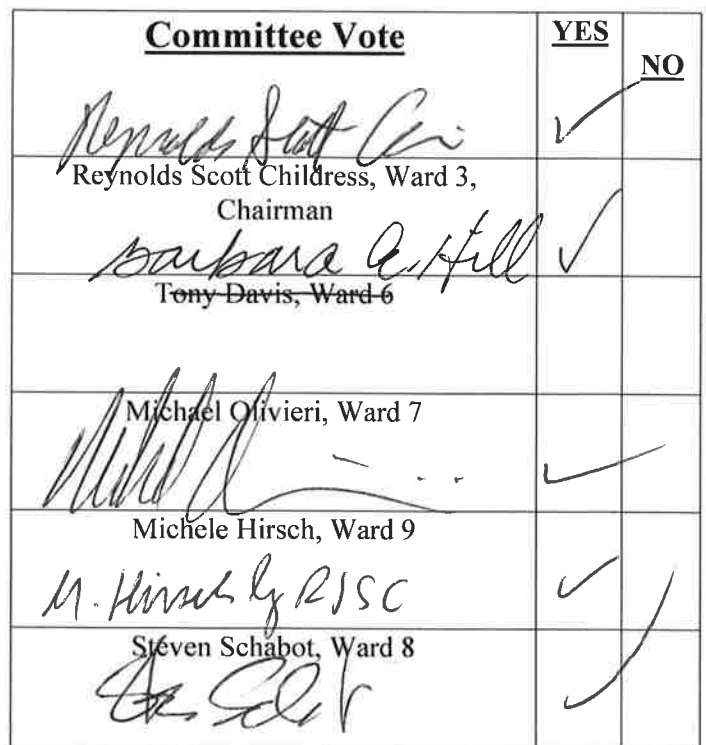 Committee Vote
YES
NO
Reynolds Scott
✓
Reynolds Scott Childress, Ward 3,
Chairman
Barbara A. Hill
✓
Tony Davis, Ward 6
Michael Olivieri, Ward 7
✓
Michele Hirsch, Ward 9
M. Hirsch by RSSC
✓
Steven Schabot, Ward 8
✓